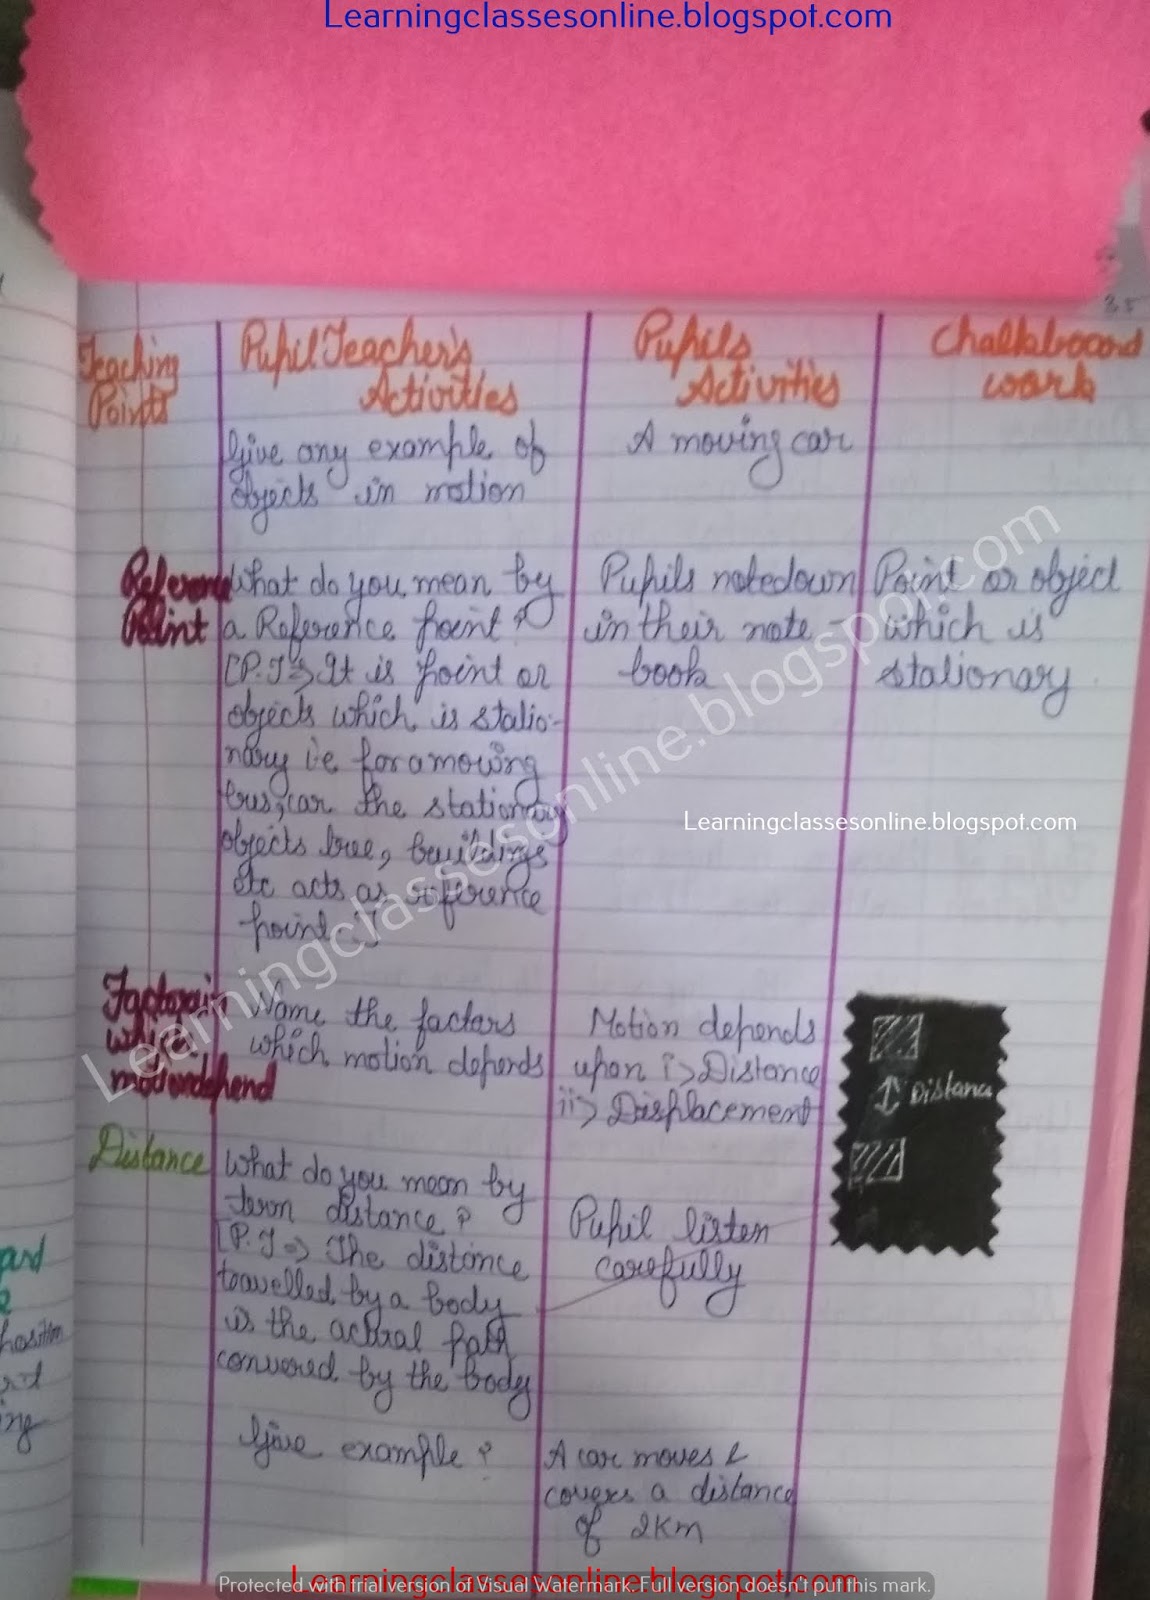 Learningclassesonline.blogspot.com
Teaching
Points
Pupil Teacher's
Activities
Pupils
Activities
Chalkboard
work
Give any example of
objects in motion
A moving car
Reference
Point
What do you mean by
a Reference point?
[P.T => It is point or
objects which is statio-
nary i.e for a moving
bus, car the stationary
objects tree, buildings
etc acts as reference
point.]
Pupils notedown
in their note -
book
Point or object
which is
stationary.
Learningclassesonline.blogspot.com
Learningclassesonline.blogspot.com
motiondepend
Name the factors
which motion depends
Motion depends
upon i> Distance
ii> Displacement
Distance
Distance
What do you mean by
term distance?
[P.T => The distance
travelled by a body
is the actual path
convered by the body
Pupil listen
carefully
Give example?
A car moves &
covers a distance
of 2Km
Learningclassesonline.blogspot.com
Protected with trial version of Visual Watermark. Full version doesn't put this mark.